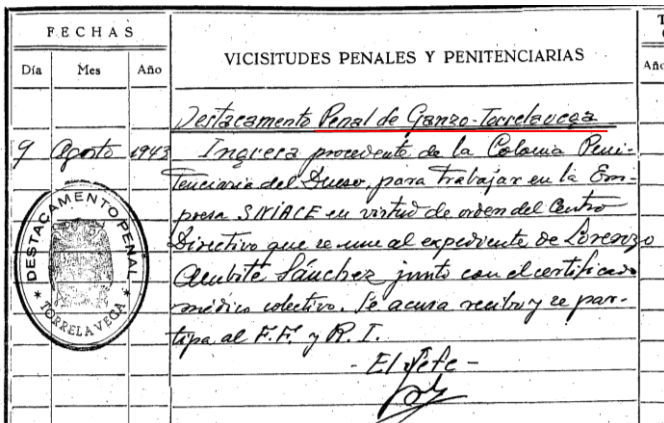 FECHAS
VICISITUDES PENALES Y PENITENCIARIAS
Día Mes Año
Destacamento Penal de Ganzo-Torrelavega
9 Agosto 1943 Ingresa procedente de la Colonia Peni-
tenciaria del Dueso, para trabajar en la Em-
presa SNIACE en virtud de orden del Centro
Directivo que se une al expediente de Lorenzo
Sánchez junto con el certificado
médico colectivo. Se acusa recibo y se par-
tipa al F.F. y R.I.
- El Jefe -
DESTACAMENTO PENAL
* TORRELAVEGA *